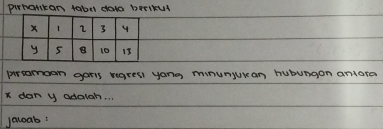 perhatikan tabel data berikut
x 1 2 3 4
y 5 8 10 13
persamaan garis regresi yang menunjukan hubungan antara
x dan y adalah...
jawab :